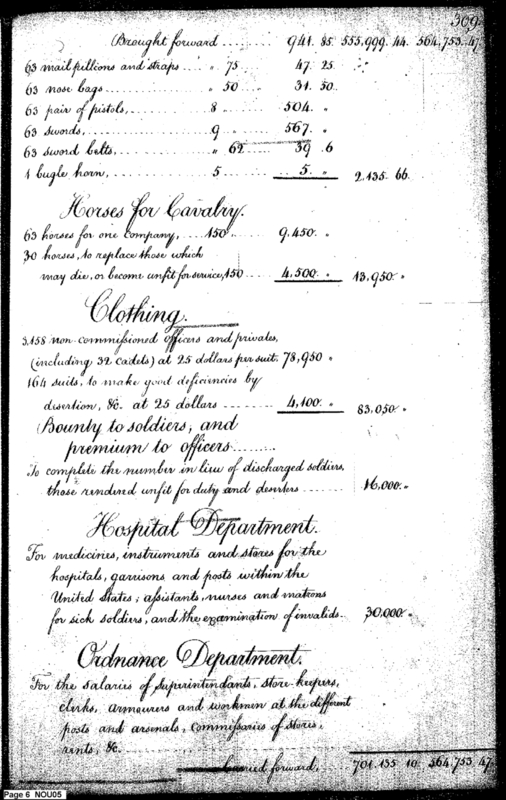 309
Brought forward ........ 941. 85. 555,999. 44. 564,753. 47
63 mail pillions and straps ... " 75 ..... 47. 25
63 nose bags ........ " 50 ..... 31. 50
63 pair of pistols, ....... 8 " ..... 504. "
63 swords, ......... 9 " ..... 567. "
63 sword belts, ....... " 62 ..... 39 .6
1 bugle horn, ........ 5 ..... 5. " 2.135. 66
Horses for Cavalry.
63 horses for one company, ... 150 " .... 9.450. "
30 horses, to replace those which
may die, or become unfit for service, 150 .... 4,500. " 13,950. "
Clothing.
3,158 non-commissioned officers and privates,
(including 32 cadets) at 25 dollars per suit. 78,950 "
164 suits, to make good deficiencies by
desertion, &c. at 25 dollars ........ 4,100. " 83,050. "
Bounty to soldiers; and
premium to officers .........
To complete the number in lieu of discharged soldiers,
those rendered unfit for duty and deserters ........ 16,000. "
Hospital Department.
For medicines, instruments and stores for the
hospitals, garrisons and posts within the
United States; assistants, nurses and matrons
for sick soldiers, and the examination of invalids. 30,000. "
Ordnance Department.
For the salaries of superintendants, store-keepers,
clerks, armourers and workmen at the different
posts and arsenals, commissaries of stores,
rents, &c. ........
Carried forward, .... 701,135 10 564,753. 47
Page 6 NOU05